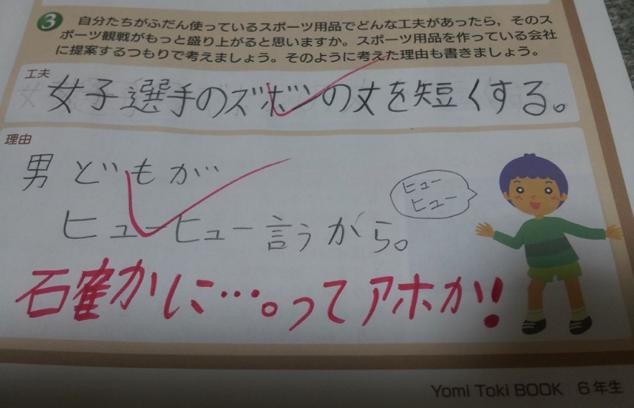 3 自分たちがふだん使っているスポーツ用品でどんな工夫があったら，そのス
ポーツ観戦がもっと盛り上がると思いますか。スポーツ用品を作っている会社
に提案するつもりで考えましょう。そのように考えた理由も書きましょう。
工夫
女子選手のズボンの丈を短くする。
理由
男どもが
ヒューヒュー言うから。
ヒュー
ヒュー
確かに…。ってアホか!
Yomi Toki BOOK 6年生